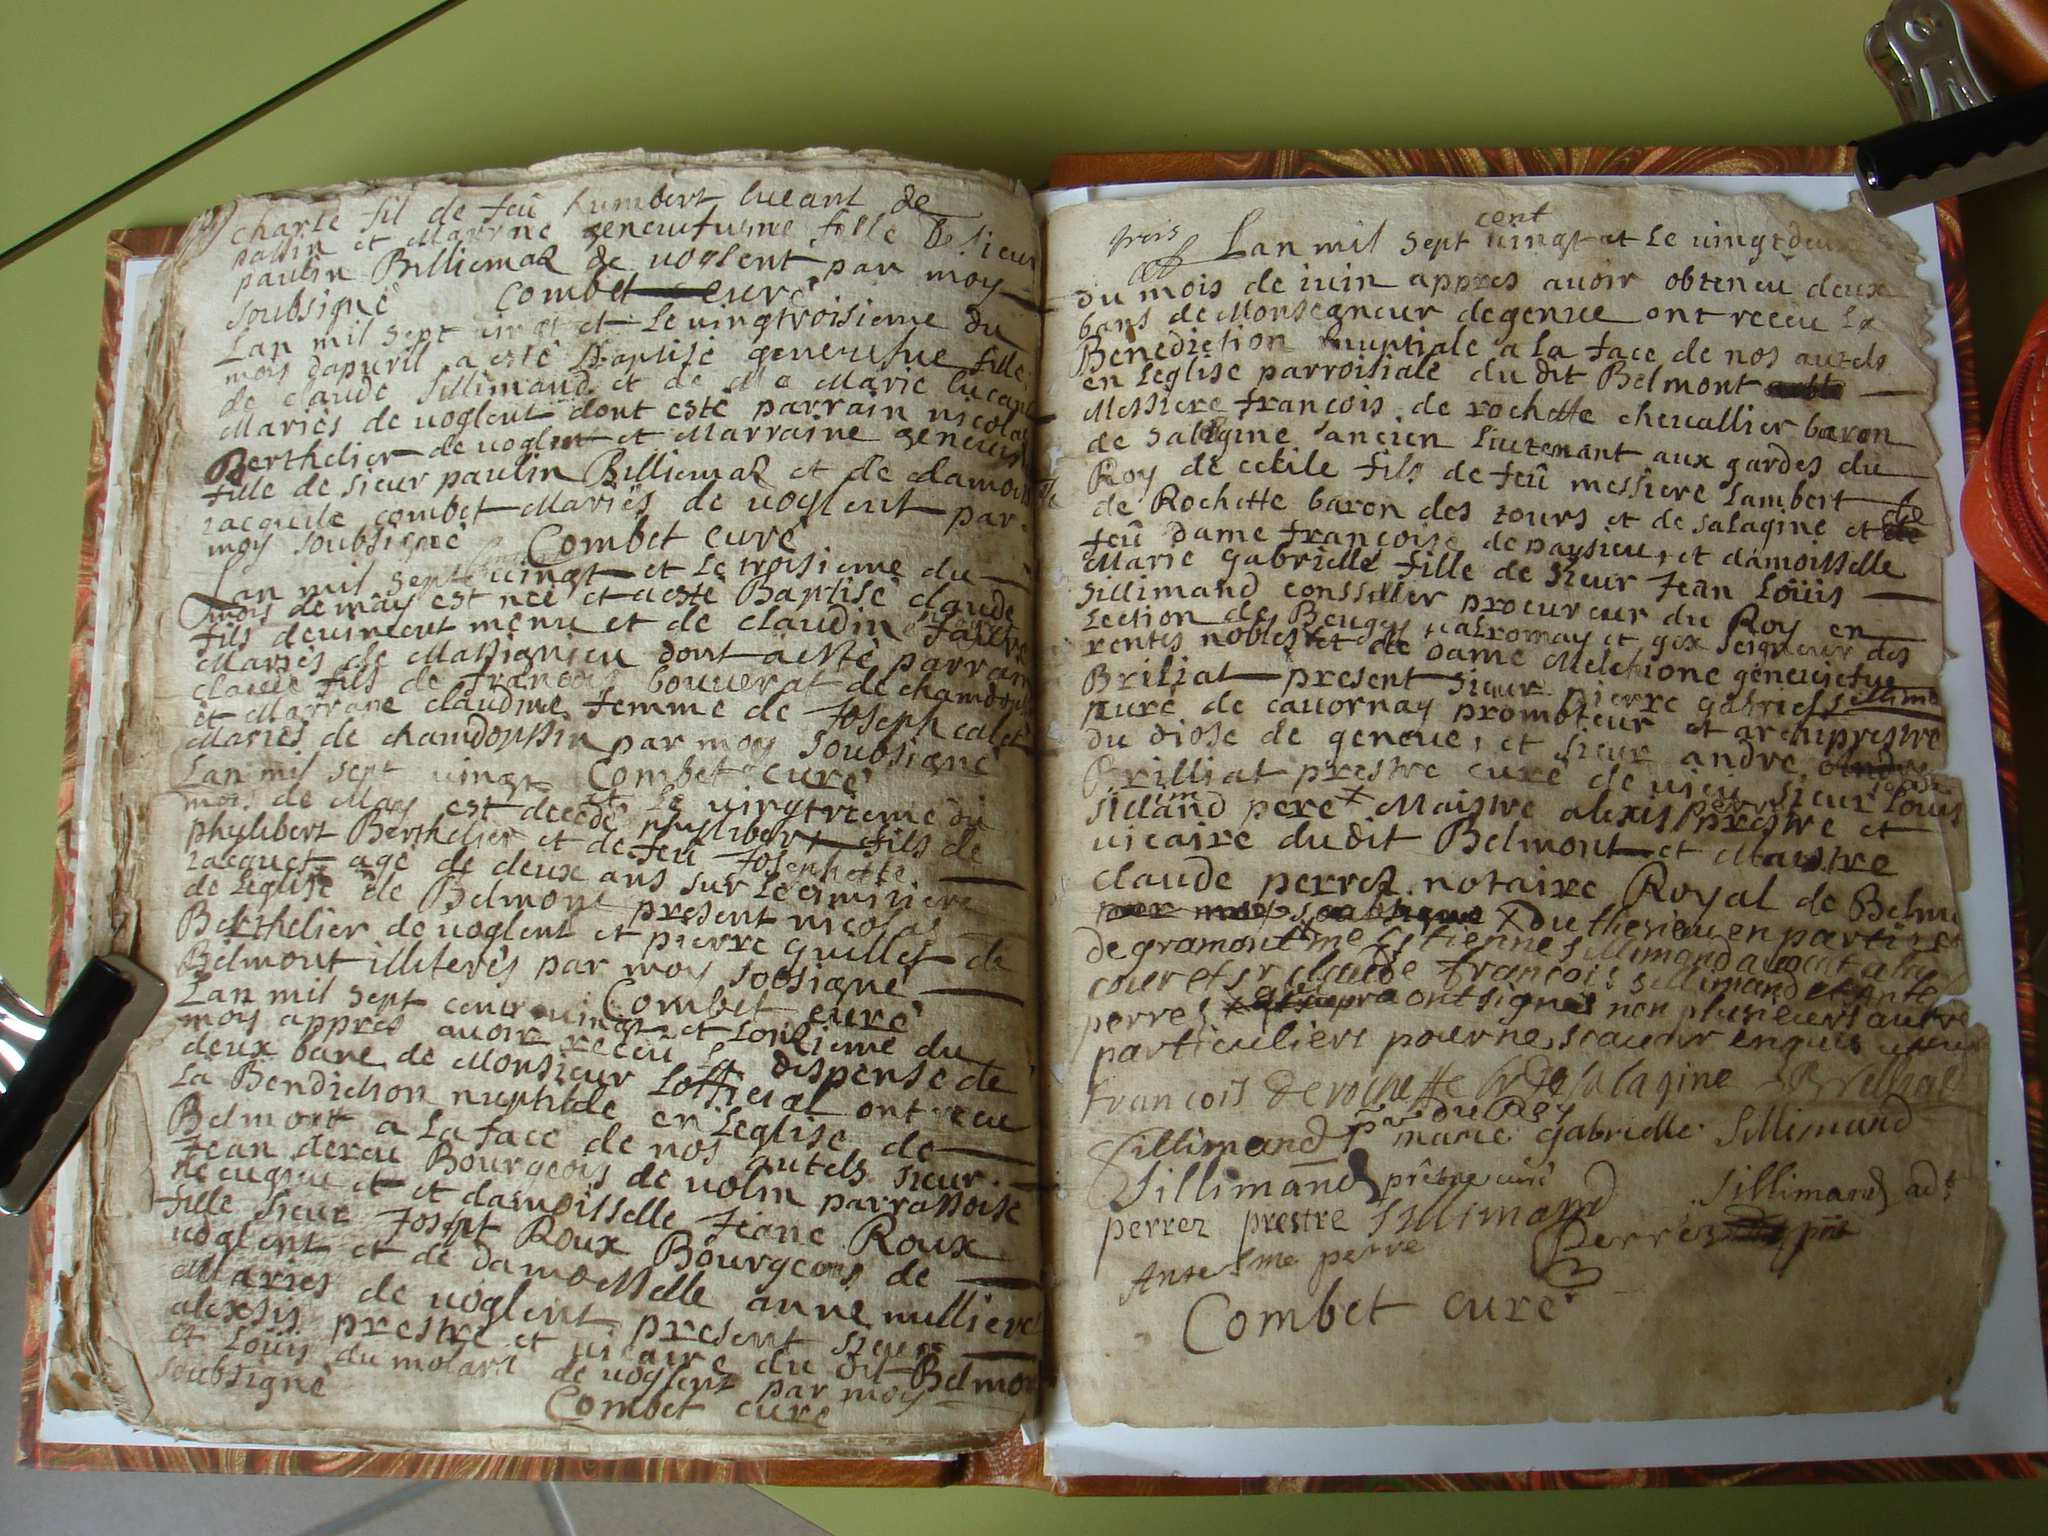 charle fil de feû humbert lucant de
passin et Marrne genevursme fille de sieur
paulin Billiemaz de voglent par moy
soubsigne Combet curé
Lan mil sept vingt et Le vingtroisieme du
mois dapvril a esté Baptisé genevisve fille
de claude sillimand et de Me Marie lucant
Mariés de voglent dont esté parrain nicolas
Berthelier de voglent et Marraine genevis
fille de sieur paulin Billiemaz et de damoiselle
racquile combet Mariés de voglent par
moy soubsigné Combet curé
Lan mil sept vingt et Le troisieme du
mois de may est née et a esté Baptisé claude
fils de vincent menu et de claudine faivre
Mariés de Massignieu dont a esté parrain
claude fils de francois bouverat de chamdossin
et Marrane claudine femme de Joseph calet
Mariés de chamdossin par moy soubsigné
Combet curé
Lan mil sept vingt et Le vingtrieme du
moi de May est decedé phylibert fils de
phylibert Berthelier et de feu Josephette
racquet agé de deux ans sur Le cimitiere
de Leglise de Belmont present nicolas
Berthelier de voglent et pierre guillet de
Belmont illiterés par moy soosigné
Combet curé
Lan mil sept cent vingt et Lonzieme du
moy appres avoir receu La dispense de
deux bane de Monsieur Lofficial ont recu
La Bendiction nuptiale en Leglise de
Belmont a La face de nos autels sieur
Jean dereu Bourgeois de volin parrassoise
de cugnu et et damoisselle Jeane Roux
fille sieur Josept Roux Bourgeois de
voglent et de damoisselle anne nulliere
Maries de voglent present sieur
alexsis prestre et vicaire du dit Belmont
et Loüis du molart de voglent par moy
soubsigné Combet curé
trois
cent
Lan mil sept vingt et Le vingtdeux
du mois de iuin appres avoir obteneu deux
bans de Monsegneur degenve ont receu La
Benediction nuptiale a La face de nos autels
en Leglise parroisiale du dit Belmont
Messiere francois de rochette chevallier baron
de salagine ancien Lieutenant aux gardes du
Roy de cecile fils de feû messiere Lambert
de Rochette baron des tours et de salagine et de
feû dame francoise de paysieu, et damoisselle
Marie gabrielle fille de sieur Jean Loüis
sillimand conssiller procureur du Roy en
Lection de Beugey valromay et gex seigneur des
rentes nobles et de dame Melchione geneviefve
Briliat present sieur pierre gabriel sillima
curé de cavornay promoteur et archiprestre
du diose de geneve, et sieur andre
Brilliat prestre curé de vieu sieur Louis
sillimand pere x Maistre alexis perret prestre et
vicaire du dit Belmont et Maistre
claude perrez notaire Royal de Belmo
par moy soubsigné x Du thesieu en partie
de gramont me Estienne sillimand avocat a la
cour et sr claude francois sillimand et ante
perre ont signés non plusieurs autre
particuliers pour ne scavoir enquis
francois Derochette de salagine Brilliat
Sillimand pr du Roy marie gabrielle sillimand
Sillimand prêtre curé Sillimand adt
perrez prestre Sillimand Perrez
Anselme perre
Combet curé